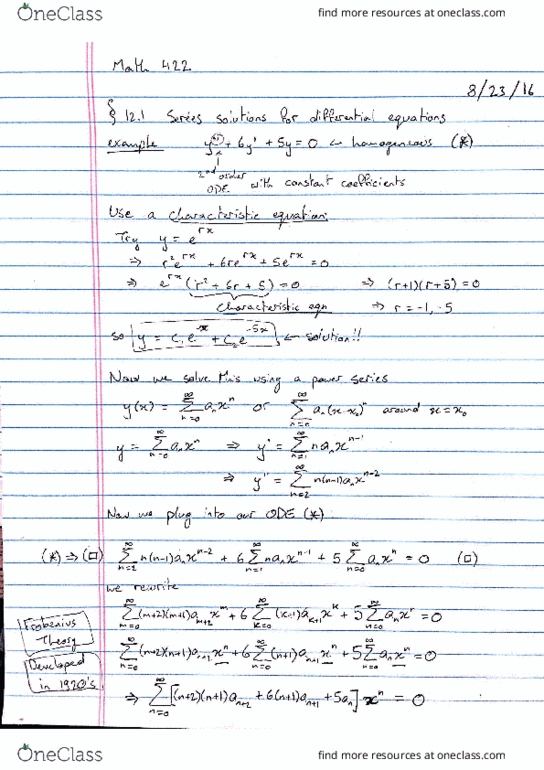 OneClass
find more resources at oneclass.com
Math 422
8/23/16
§ 12.1 Series solutions for differential equations
example y'' + 6y' + 5y = 0 ← homogeneous (*)
2nd order
ODE with constant coefficients
Use a characteristic equation:
Try y = e^{rx}
⇒ r²e^{rx} + 6re^{rx} + 5e^{rx} = 0
⇒ e^{rx}(r² + 6r + 5) = 0 ⇒ (r+1)(r+5) = 0
characteristic eqn ⇒ r = -1, -5
so y = c₁e^{-x} + c₂e^{-5x} ← solution!!
Now we solve this using a power series
y(x) = ∑_{n=0}^∞ aₙxⁿ or ∑_{n=0}^∞ aₙ(x-x₀)ⁿ around x = x₀
y = ∑_{n=0}^∞ aₙxⁿ ⇒ y' = ∑_{n=1}^∞ naₙx^{n-1}
⇒ y'' = ∑_{n=2}^∞ n(n-1)aₙx^{n-2}
Now we plug into our ODE (*)
(*) ⇒ (□) ∑_{n=2}^∞ n(n-1)aₙx^{n-2} + 6∑_{n=1}^∞ naₙx^{n-1} + 5∑_{n=0}^∞ aₙxⁿ = 0 (□)
we rewrite
∑_{m=0}^∞ (m+2)(m+1)a_{m+2}x^m + 6∑_{k=0}^∞ (k+1)a_{k+1}x^k + 5∑_{n=0}^∞ aₙxⁿ = 0
Frobenius
Theory
∑_{n=0}^∞ (n+2)(n+1)a_{n+2}xⁿ + 6∑_{n=0}^∞ (n+1)a_{n+1}xⁿ + 5∑_{n=0}^∞ aₙxⁿ = 0
Developed
in 1920's
⇒ ∑_{n=0}^∞ [(n+2)(n+1)a_{n+2} + 6(n+1)a_{n+1} + 5aₙ] xⁿ = 0
OneClass
find more resources at oneclass.com